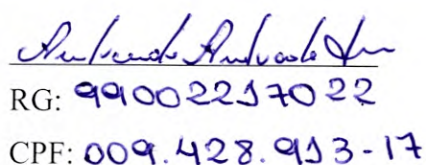 RG: 99002217022
CPF: 009.428.913-17